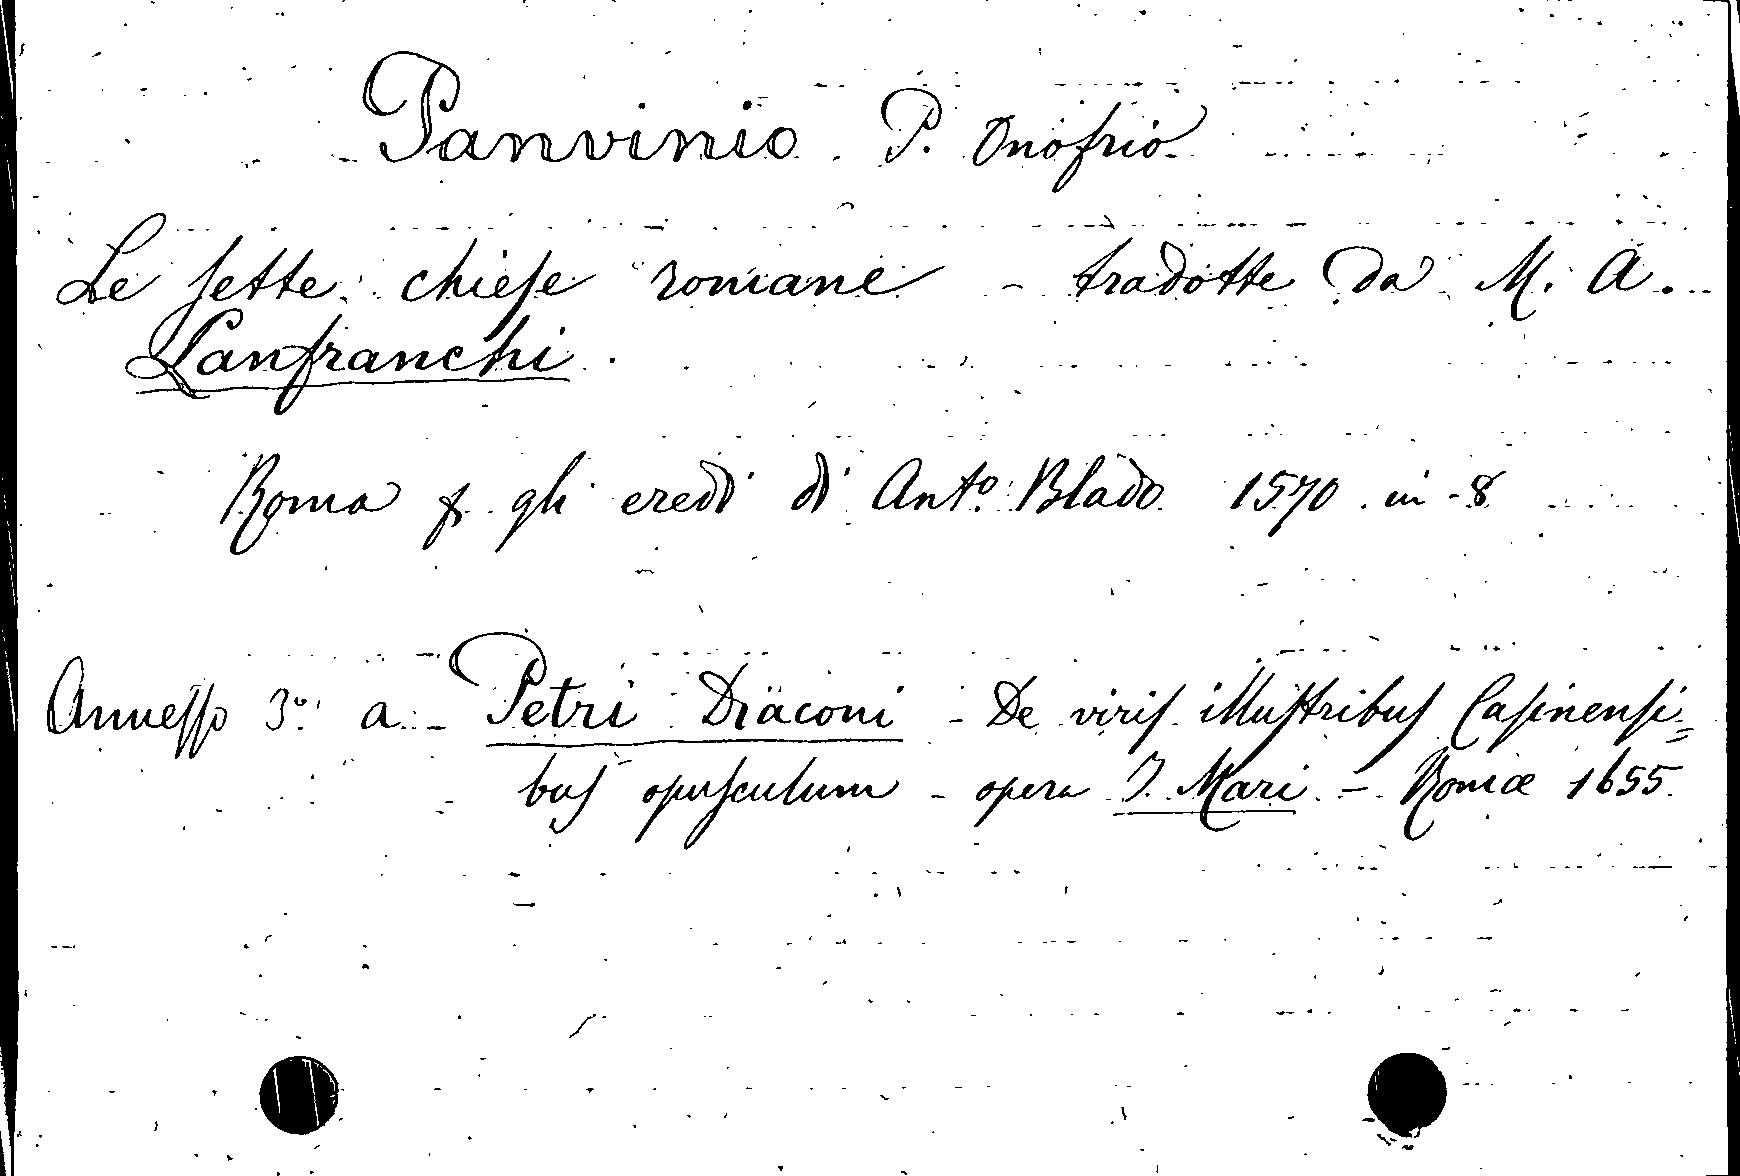 Panvinio P. Onofrio
Le sette chiese romane - tradotte da M. A.
Lanfranchi.
Roma p. gli eredi di Ant.º Blado 1570 in-8
Annesso 3º a - Petri Diaconi - De viris illustribus Casinensi=
bus opusculum - opera J. Mari - Romæ 1655